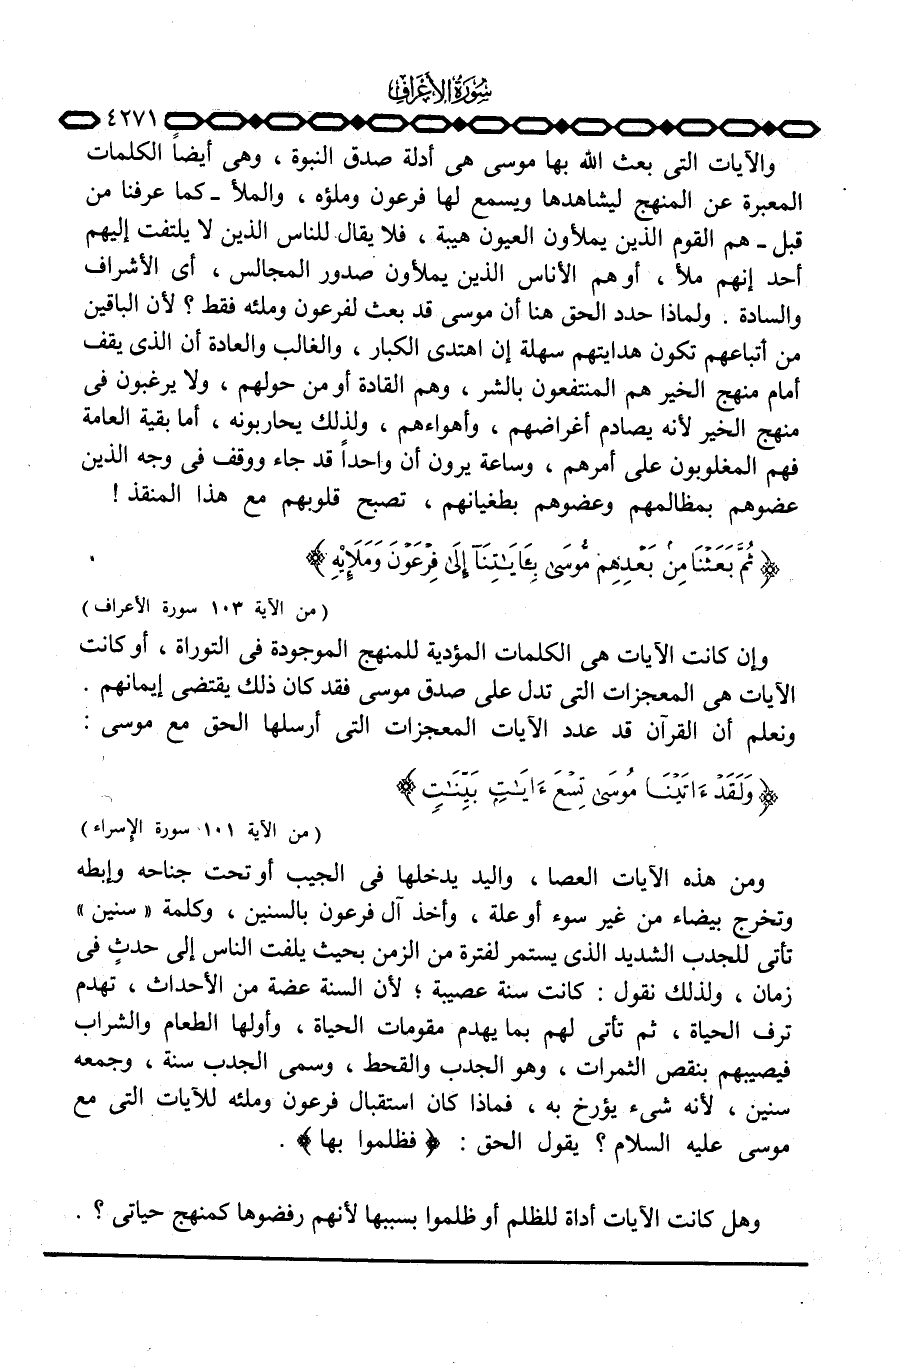 سُورَةُ الأَعْرَافِ
٤٢٧١
والآيات التى بعث الله بها موسى هى أدلة صدق النبوة ، وهى أيضاً الكلمات
المعبرة عن المنهج ليشاهدها ويسمع لها فرعون وملؤه ، والملأ ـ كما عرفنا من
قبل ـ هم القوم الذين يملأون العيون هيبة ، فلا يقال للناس الذين لا يلتفت إليهم
أحد إنهم ملأ ، أو هم الأناس الذين يملأون صدور المجالس ، أى الأشراف
والسادة . ولماذا حدد الحق هنا أن موسى قد بعث لفرعون وملئه فقط ؟ لأن الباقين
من أتباعهم تكون هدايتهم سهلة إن اهتدى الكبار ، والغالب والعادة أن الذى يقف
أمام منهج الخير هم المنتفعون بالشر ، وهم القادة أو من حولهم ، ولا يرغبون فى
منهج الخير لأنه يصادم أغراضهم ، وأهواءهم ، ولذلك يحاربونه ، أما بقية العامة
فهم المغلوبون على أمرهم ، وساعة يرون أن واحداً قد جاء ووقف فى وجه الذين
عضوهم بمظالمهم وعضوهم بطغيانهم ، تصبح قلوبهم مع هذا المنقذ !
﴿ ثُمَّ بَعَثْنَا مِنۢ بَعْدِهِم مُّوسَىٰ بِـَٔايَـٰتِنَآ إِلَىٰ فِرْعَوْنَ وَمَلَإِيْهِۦ ﴾
( من الآية ١٠٣ سورة الأعراف )
وإن كانت الآيات هى الكلمات المؤدية للمنهج الموجودة فى التوراة ، أو كانت
الآيات هى المعجزات التى تدل على صدق موسى فقد كان ذلك يقتضى إيمانهم .
ونعلم أن القرآن قد عدد الآيات المعجزات التى أرسلها الحق مع موسى :
﴿ وَلَقَدْ ءَاتَيْنَا مُوسَىٰ تِسْعَ ءَايَـٰتٍۭ بَيِّنَـٰتٍ ﴾
( من الآية ١٠١ سورة الإسراء )
ومن هذه الآيات العصا ، واليد يدخلها فى الجيب أو تحت جناحه وإبطه
وتخرج بيضاء من غير سوء أو علة ، وأخذ آل فرعون بالسنين ، وكلمة « سنين »
تأتى للجدب الشديد الذى يستمر لفترة من الزمن بحيث يلفت الناس إلى حدثٍ فى
زمان ، ولذلك نقول : كانت سنة عصيبة ؛ لأن السنة عضة من الأحداث ، تهدم
ترف الحياة ، ثم تأتى لهم بما يهدم مقومات الحياة ، وأولها الطعام والشراب
فيصيبهم بنقص الثمرات ، وهو الجدب والقحط ، وسمى الجدب سنة ، وجمعه
سنين ، لأنه شىء يؤرخ به ، فماذا كان استقبال فرعون وملئه للآيات التى مع
موسى عليه السلام ؟ يقول الحق : ﴿ فظلموا بها ﴾ .
وهل كانت الآيات أداة للظلم أو ظلموا بسببها لأنهم رفضوها كمنهج حياتى ؟ .